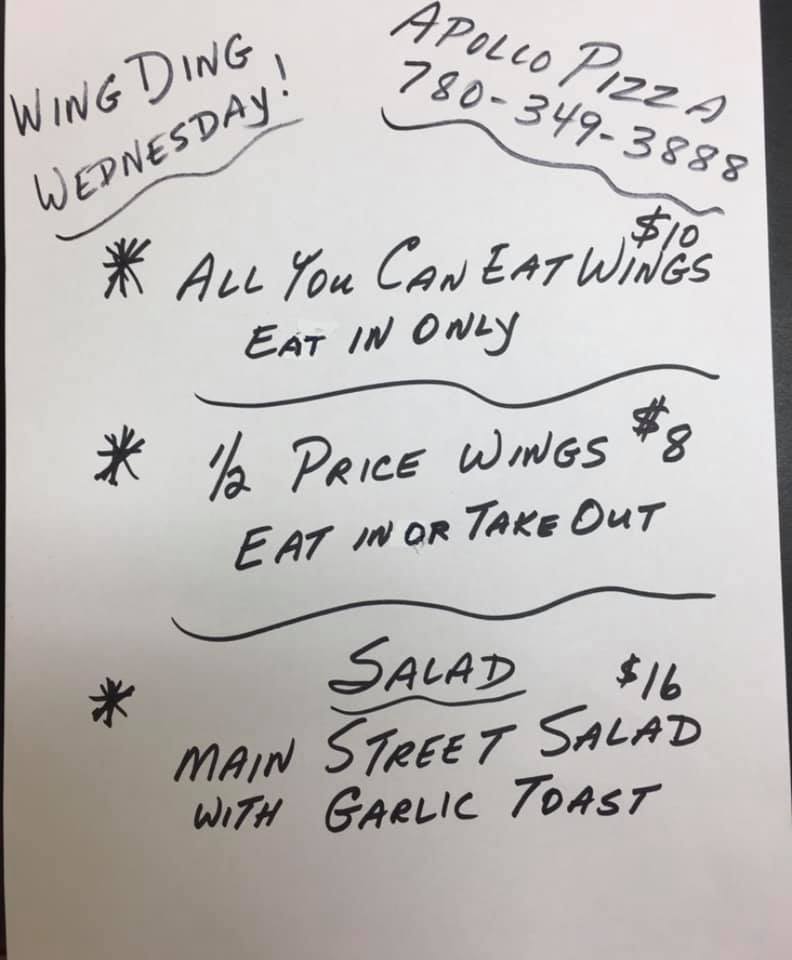 WING DING
WEDNESDAY!
APOLLO PIZZA
780-349-3888
* ALL YOU CAN EAT WINGS $10
EAT IN ONLY
* 1/2 PRICE WINGS $8
EAT IN OR TAKE OUT
* SALAD $16
MAIN STREET SALAD
WITH GARLIC TOAST